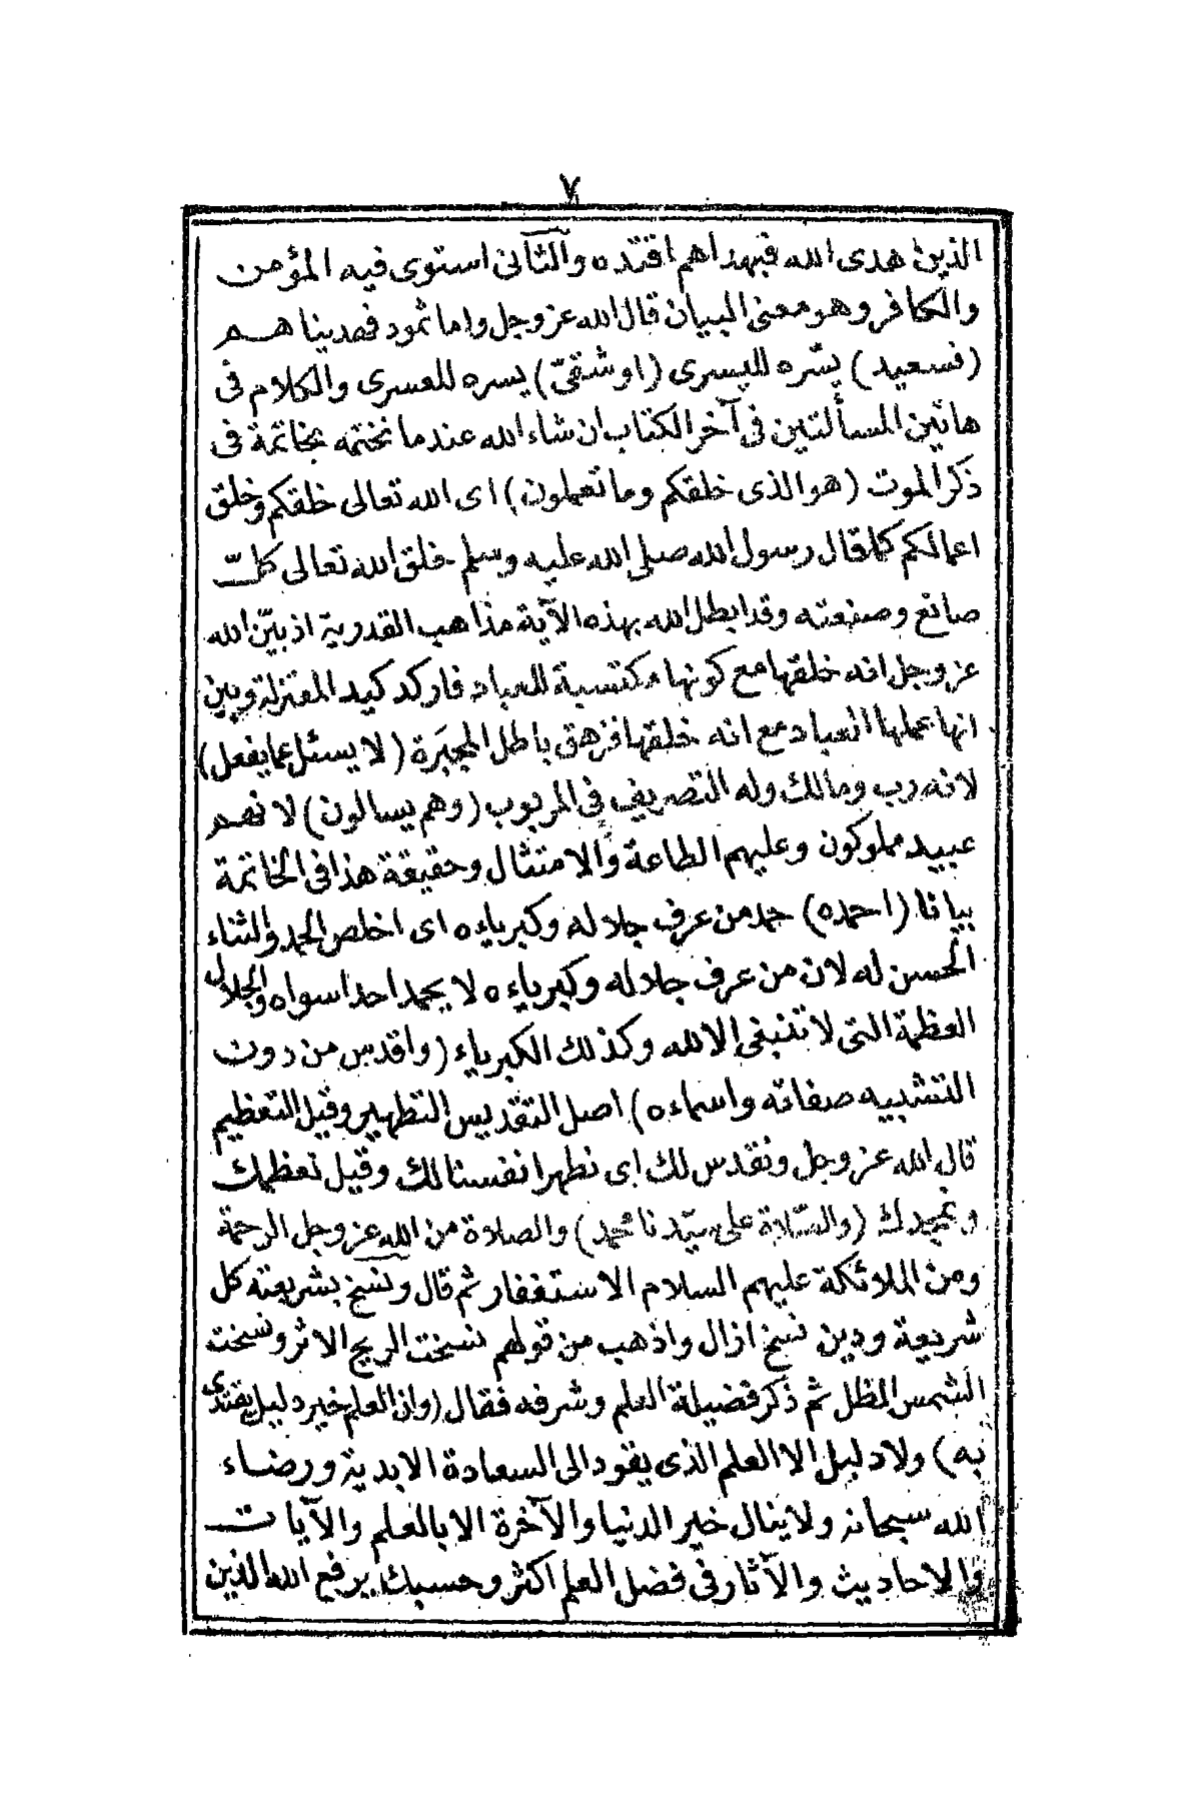 ٧
الذين هدى الله فبهداهم اقتده والثانى استوى فيه المؤمن
والكافر وهو معنى البيان قال الله عز وجل واما ثمود فهديناهم
(فسعيد) يسّره لليسرى (اوشقىّ) يسره للعسرى والكلام فى
هاتين المسألتين فى آخر الكتاب ان شاء الله عندما نختمه بخاتمة فى
ذكر الموت (هو الذى خلقكم وما تعملون) اى الله تعالى خلقكم وخلق
اعمالكم كما قال رسول الله صلى الله عليه وسلم خلق الله تعالى كلّ
صانع وصنعته وقد ابطل الله بهذه الآية مذاهب القدرية اذ بيّن الله
عز وجل انه خلقها مع كونها مكتسبة للعباد فاركد كيد المعتزلة وبين
انها عملها العباد مع انه خلقها فزهق باطل المجبَرة (لا يسئل عما يفعل)
لانه رب ومالك وله التصريف فى المربوب (وهم يسالون) لانهم
عبيد مملوكون وعليهم الطاعة والامتثال وحقيقة هذا فى الخاتمة
بيانا (احمده) حمد من عرف جلاله وكبرياءه اى اخلص الحمد والثناء
الحسن له لان من عرف جلاله وكبرياءه لا يحمد احدا سواه والجلال
العظمة التى لا تنبغى الا لله وكذلك الكبرياء (واقدس من دون
التشبيه صفاته واسماءه) اصل التقديس التطهير وقيل التعظيم
قال الله عز وجل ونقدس لك اى نطهر انفسنا لك وقيل نعظمك
ونمجدك (والصّلاة على سيّدنا محمد) والصلاة من الله عز وجل الرحمة
ومن الملائكة عليهم السلام الاستغفار ثم قال ونسخ بشريعته كل
شريعة ودين نسخ ازال واذهب من قولهم نسخت الريح الاثر ونسخت
الشمس الظل ثم ذكر فضيلة العلم وشرفه فقال (وان العلم خير دليل يقتدى
به) ولا دليل الا العلم الذى يقود الى السعادة الابدية ورضاء
الله سبحانه ولا ينال خير الدنيا والآخرة الا بالعلم والآيات
والاحاديث والآثار فى فضل العلم اكثر وحسبك يرفع الله الذين